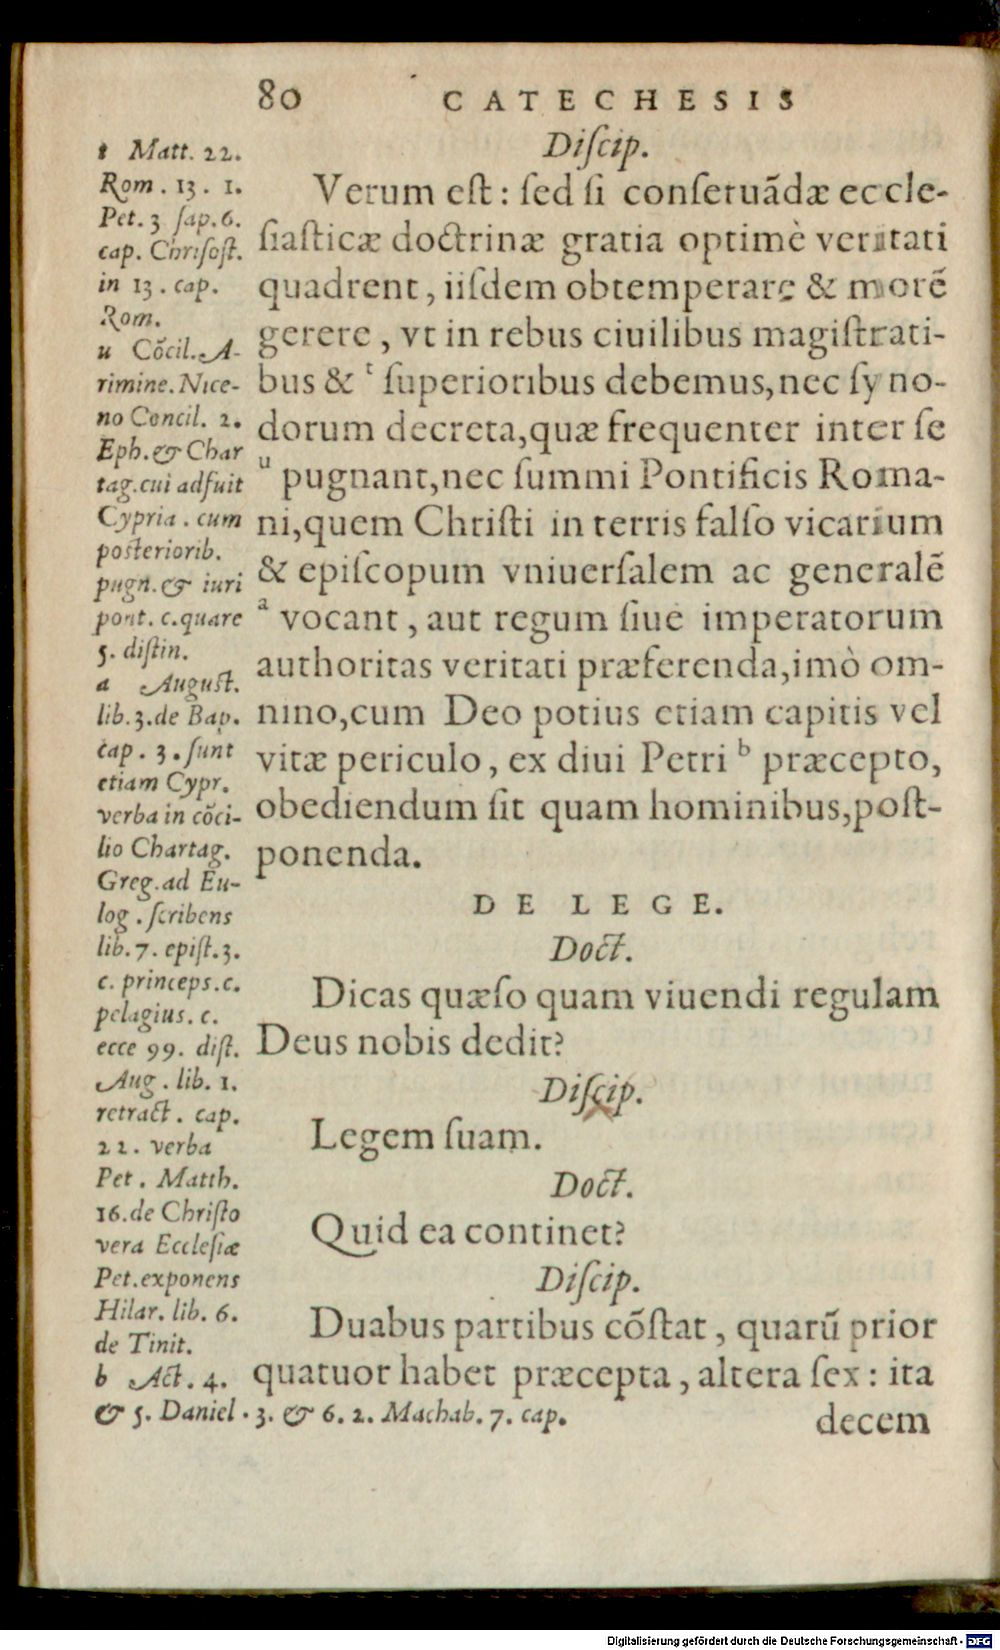 80 CATECHESIS
Diſcip.
Verum eſt: ſed ſi conſeruãdæ eccle-
ſiaſticæ doctrinæ gratia optimè veritati
quadrent, iiſdem obtemperare & morẽ
gerere, vt in rebus ciuilibus magiſtrati-
bus & t ſuperioribus debemus, nec ſyno-
dorum decreta, quæ frequenter inter ſe
u pugnant, nec ſummi Pontificis Roma-
ni, quem Chriſti in terris falſo vicarium
& epiſcopum vniuerſalem ac generalẽ
a vocant, aut regum ſiue imperatorum
authoritas veritati præferenda, imò om-
nino, cum Deo potius etiam capitis vel
vitæ periculo, ex diui Petri b præcepto,
obediendum ſit quam hominibus, poſt-
ponenda.
DE LEGE.
Doct.
Dicas quæſo quam viuendi regulam
Deus nobis dedit?
Diſcip.
Legem ſuam.
Doct.
Quid ea continet?
Diſcip.
Duabus partibus cõſtat, quarũ prior
quatuor habet præcepta, altera ſex: ita
decem
t Matt. 22.
Rom. 13. 1.
Pet. 3 ſap. 6.
cap. Chriſoſt.
in 13. cap.
Rom.
u Cõcil. A-
rimine. Nice-
no Concil. 2.
Eph. & Char
tag. cui adfuit
Cypria. cum
posteriorib.
pugn. & iuri
pont. c. quare
5. diſtin.
a Auguſt.
lib. 3. de Bap.
cap. 3. ſunt
etiam Cypr.
verba in cõci-
lio Chartag.
Greg. ad Eu-
log. ſcribens
lib. 7. epiſt. 3.
c. princeps. c.
pelagius. c.
ecce 99. diſt.
Aug. lib. 1.
retract. cap.
22. verba
Pet. Matth.
16. de Chriſto
vera Eccleſiæ
Pet. exponens
Hilar. lib. 6.
de Tinit.
b Act. 4.
& 5. Daniel. 3. & 6. 2. Machab. 7. cap.
Digitalisierung gefördert durch die Deutsche Forschungsgemeinschaft - DFG